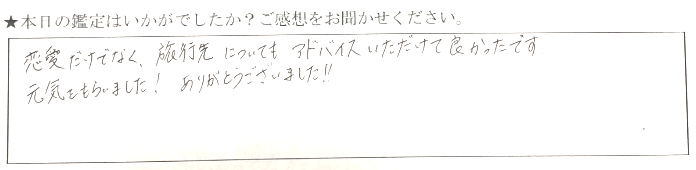 ★本日の鑑定はいかがでしたか？ご感想をお聞かせください。
恋愛だけでなく、旅行先についても アドバイスいただけて良かったです
元気をもらいました！ ありがとうございました!!